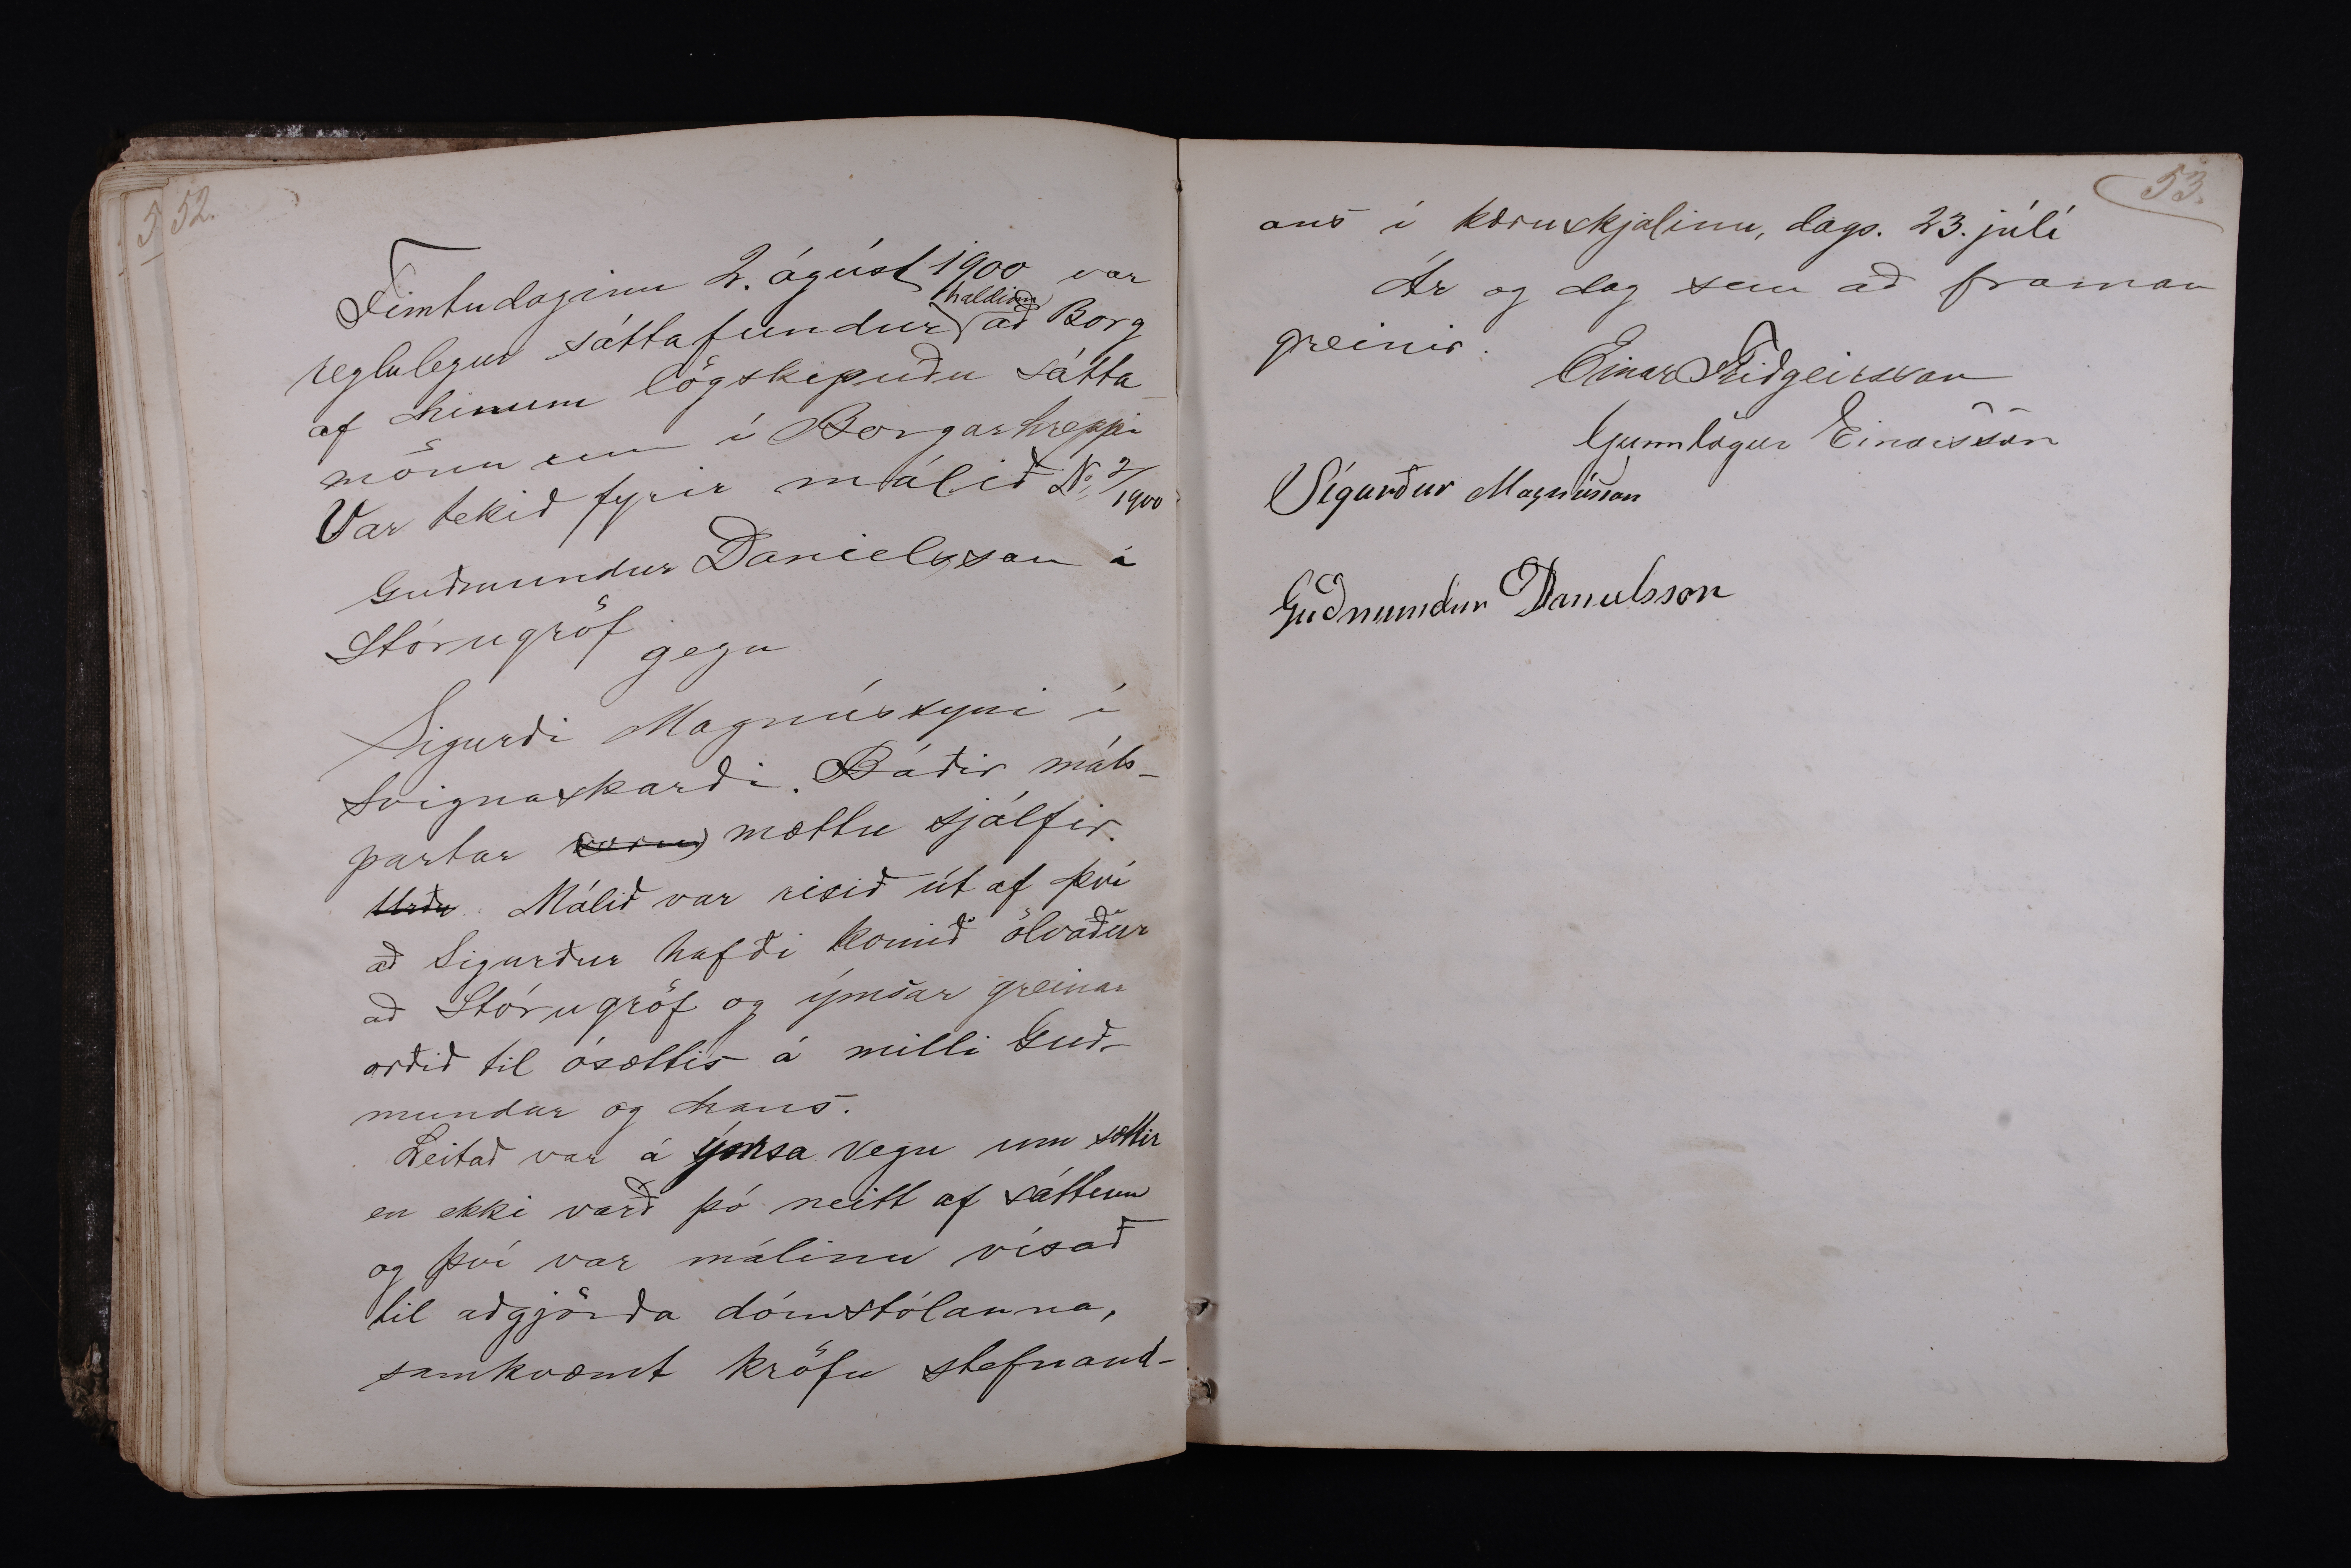 52.
Fimtudaginn 2. ágúst 1900 var
reglulegur sáttafundur haldinn að Borg
af hinum lögskipuðu sátta-
mönnum í Borgarhreppi
Var tekið fyrir málið No 2/1900
Guðmundur Danielsson á
Stórugröf
gegn
Sigurði Magnússyni í
Svignaskarði. Báðir máls-
partar voru mættu sjálfir.
Urðu. Málið var risið út af því
að Sigurður hafði komið ölvaður
að Stórugröf og ýmsar greinar
orðið til ósættis á milli Guð-
mundar og hans.
Leitað var á ýmsa vegu um sættir
en ekki varð þó neitt af sáttum
og því var málinu vísað
til aðgjörða dómstólanna,
samkvæmt kröfu stefnand-
53.
ans í kæruskjalinu, dags. 23. júlí
Ár og dag sem að framan
greinir.
Einar Friðgeirsson
Gunnlögur Einarsson
Sigurður Magnússon
Guðmundur Danielsson